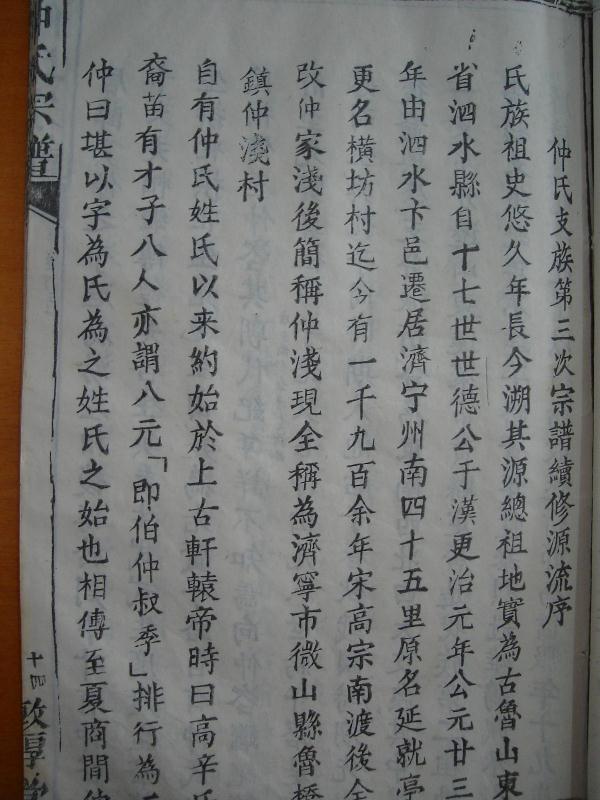 仲氏支族第三次宗譜續修源流序
氏族祖史悠久年長今溯其源總祖地實為古魯山東
省泗水縣自十七世世德公于漢更治元年公元廿三
年由泗水卞邑遷居濟宁州南四十五里原名延就亭
更名橫坊村迄今有一千九百余年宋高宗南渡後全
改仲家淺後簡稱仲淺現全稱為濟寧市微山縣魯橋
鎮仲淺村
自有仲氏姓氏以来約始於上古軒轅帝時曰高辛氏
裔苗有才子八人亦謂八元「即伯仲叔季」排行為
仲曰堪以字為氏為之姓氏之始也相傳至夏商間仲
仲氏宗譜
十四
敦厚堂